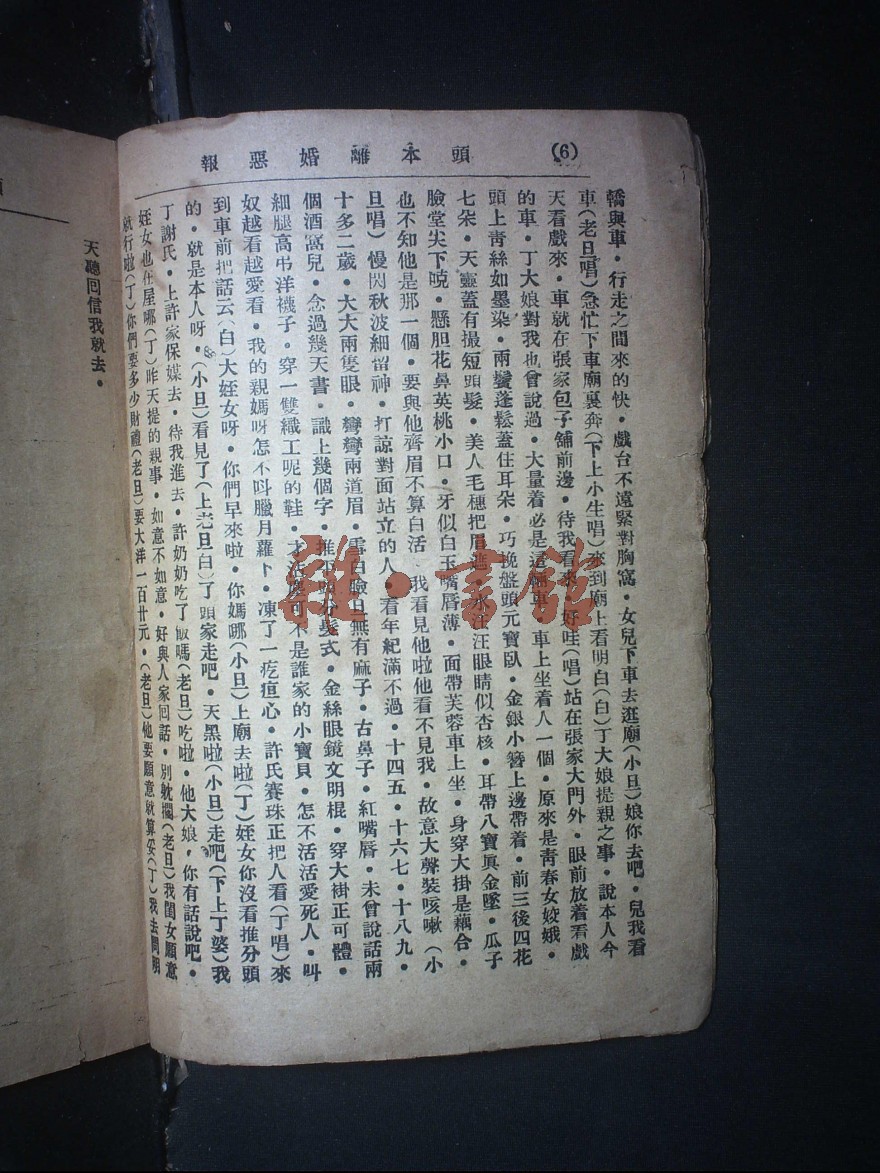 (6) 頭本離婚惡報
轎與車·行走之間來的快·戲台不遠緊對胸窩·女兒下車去逛廟(小旦)娘你去吧·兒我看
車(老旦唱)急忙下車廟裏奔(下上小生唱)來到廟上看明白(白)丁大娘提親之事·說本人今
天看戲來·車就在張家包子舖前邊·待我看來·好哇(唱)站在張家大門外·眼前放着看戲
的車·丁大娘對我也曾說過·大量着必是這輛車·車上坐着人一個·原來是靑春女姣娥·
頭上靑絲如墨染·兩鬢蓬鬆蓋住耳朶·巧挽盤頭元寶臥·金銀小簪上邊帶着·前三後四花
七朶·天靈蓋有撮短頭髮·美人毛穗把眉遮·水汪汪眼睛似杏核·耳帶八寶眞金墜·瓜子
臉堂尖下頦·懸胆花鼻英桃小口·牙似白玉嘴唇薄·面帶芙蓉車上坐·身穿大掛是藕合·
也不知他是那一個·要與他齊眉不算白活·我看見他啦他看不見我·故意大聲裝咳嗽(小
旦唱)慢閃秋波細留神·打諒對面站立的人·看年紀滿不過·十四五·十六七·十八九·
十多二歲·大大兩隻眼·彎彎兩道眉·雪白臉旦無有麻子·古鼻子·紅嘴唇·未曾說話兩
個酒窩兒·念過幾天書·識上幾個字·推下頭分髮式·金絲眼鏡文明棍·穿大褂正可體·
細腿高弔洋襪子·穿一雙織工呢的鞋·才
可不是誰家的小寶貝·怎不活活愛死人·叫
奴越看越愛看·我的親媽呀怎不叫臘月蘿卜·凍了一疙疸心·許氏賽珠正把人看(丁唱)來
到車前把話云(白)大姪女呀·你們早來啦·你媽哪(小旦)上廟去啦(丁)姪女你沒看推分頭
的·就是本人呀·(小旦)看見了(上老旦白)了頭家走吧·天黑啦(小旦)走吧(下上丁婆)我
丁謝氏·上許家保媒去·待我進去·許奶奶吃了飯嗎(老旦)吃啦·他大娘·你有話說吧·
姪女也在屋哪(丁)昨天提的親事·如意不如意·好與人家回話·別躭擱(老旦)我閨女願意
就行啦(丁)你們要多少財禮(老旦)要大洋一百廿元·(老旦)他要願意就算妥(丁)我去問明
天聽回信我就去·
雜·書館